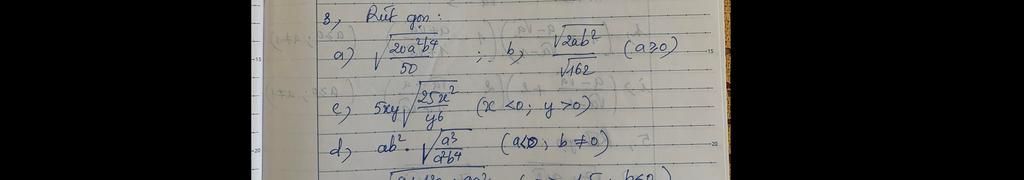 3, Rút gọn:
a) √(20a²b⁴/50) ; b, √(2ab²)/√162 (a≥0)
c) 5xy√(25x²/y6) (x <0; y >0)
d, ab² . √(a³/a²b⁴) (a<0; b ≠ 0)